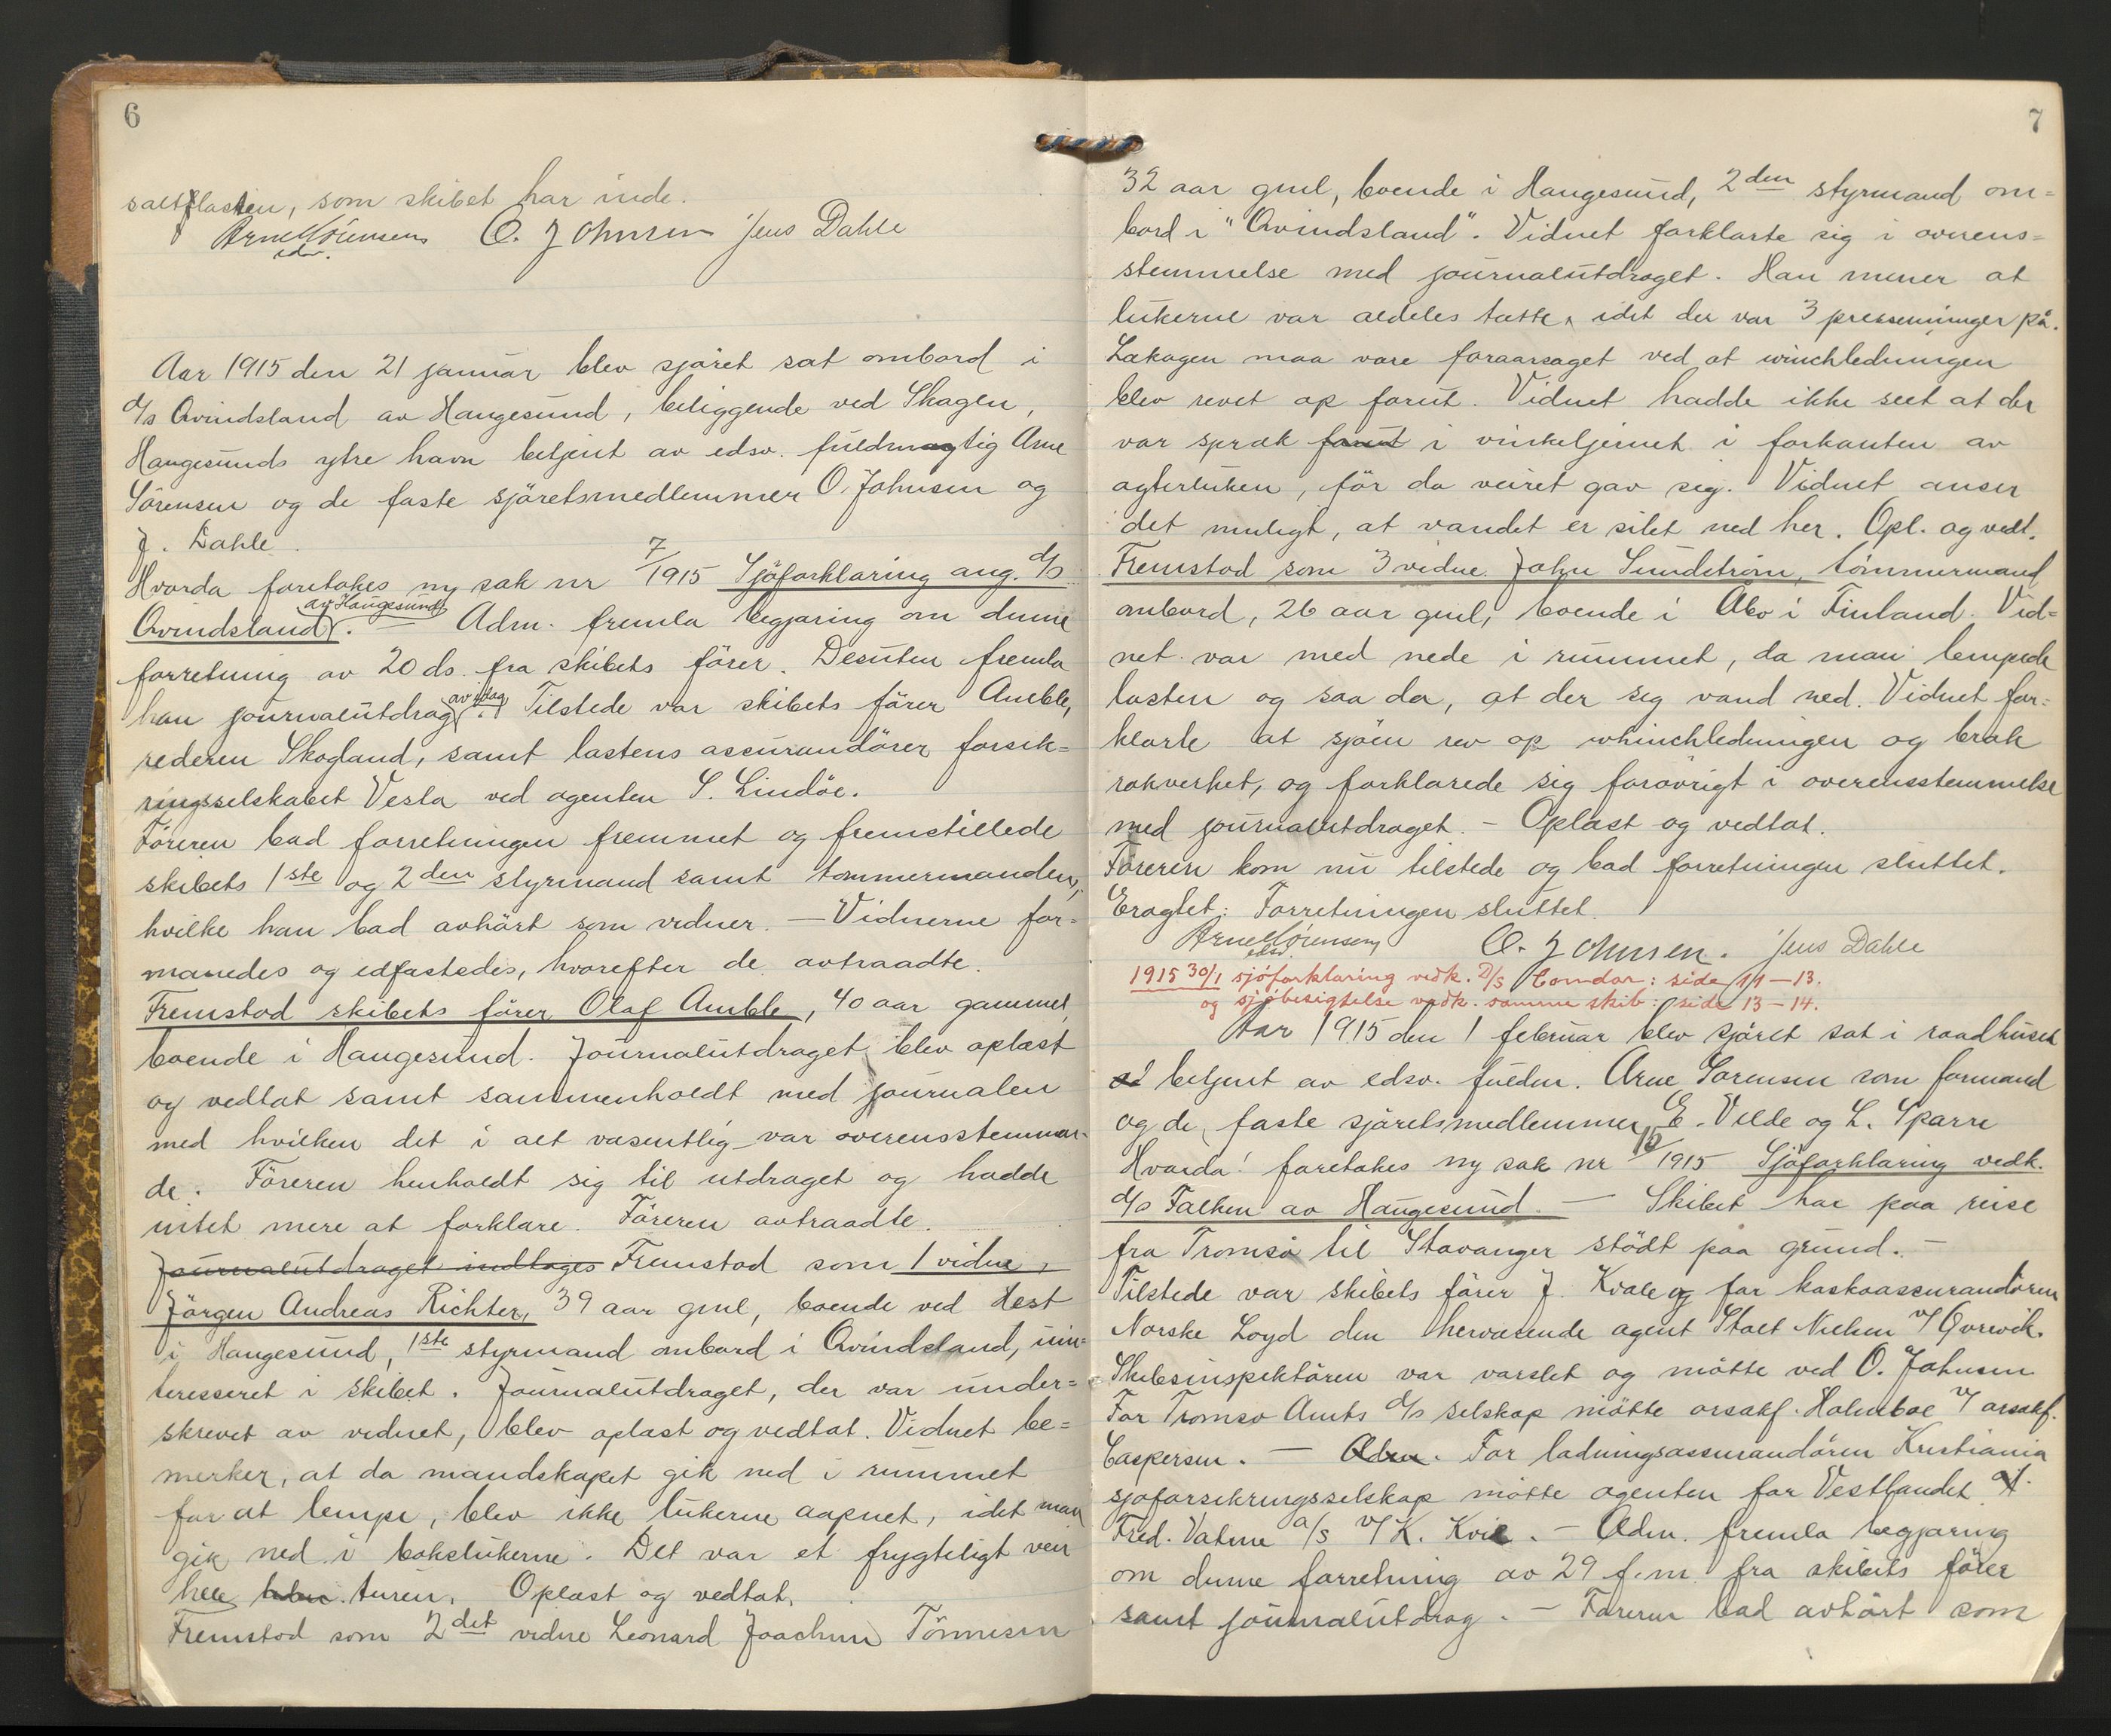 6
saltlasten, som skibet har inde.
Arne Sörensen O. Johnsen Jens Dahle
edsv.
Aar 1915 den 21 januar blev sjöret sat ombord i
d/s Qvindsland av Haugesund, beliggende ved Skagen,
Haugesunds ytre havn betjent av edsv. fuldmægtig Arne
Sörensen og de faste sjöretsmedlemmer O. Johnsen og
J. Dahle.
Hvorda foretokes ny sak nr 7/1915 Sjöforklaring ang. d/s
Qvindsland av Haugesund. — Adm. fremla begjæring om denne
forretning av 20 ds. fra skibets förer. Desuten fremla
han journalutdrag av idag. Tilstede var skibets förer Amble,
rederen Skogland, samt lastens assurandörer forsik=
ringsselskabet Vesta ved agenten S. Lindöe.
Föreren bad forretningen fremmet og fremstillede
skibets 1ste og 2den styrmand samt tömmermanden,
hvilke han bad avhört som vidner. — Vidnerne for=
manedes og edfæstedes, hvorefter de avtraadte.
Fremstod skibets förer Olaf Amble, 40 aar gammel,
boende i Haugesund. Journalutdraget blev oplæst
og vedtat samt sammenholdt med journalen
med hvilken det i alt væsentlig var overensstemmen-
de. Föreren henholdt sig til utdraget og hadde
intet mere at forklare. Föreren avtraadte.
Journalutdraget indtages Fremstod som 1 vidne,
Jörgen Andreas Richter, 39 aar gml, boende ved Hest
i Haugesund, 1ste styrmand ombord i Qvindsland, uin=
teresseret i skibet. Journalutdraget, der var under=
skrevet av vidnet, blev oplæst og vedtat. Vidnet be=
merker, at da mandskapet gik ned i rummet
for at lempe, blev ikke lukerne aapnet, idet man
gik ned i bokslukerne. Det var et frygteligt veir
hele turen. Oplæst og vedtat.
Fremstod som 2det vidne Leonard Joachim Tönnesen
7
32 aar gml, boende i Haugesund, 2den styrmand om=
bord i "Qvindsland". Vidnet forklarte sig i overens=
stemmelse med journalutdraget. Han mener at
lukerne var aldeles tætte, idet der var 3 presseninger på.
Lækagen maa være foraarsaget ved at winchledningen
blev revet op forut. Vidnet hadde ikke seet at der
var spræk forut i vinkeljernet i forkanten av
agterluken, för da veiret gav sig. Vidnet anser
det muligt, at vandet er silet ned her. Opl. og vedt.
Fremstod som 3 vidne John Sundström, tömmermand
ombord, 26 aar gml, boende i Åbo i Finland. Vid=
net var med nede i rummet, da man lempede
lasten og saa da, at der seg vand ned. Vidnet for=
klarte at sjöen rev op whinchledningen og bræk
rækverket, og forklarede sig forövrigt i overensstemmelse
med journalutdraget. — Oplæst og vedtat.
Föreren kom nu tilstede og bad forretningen sluttet.
Eragtet: Forretningen sluttet.
Arne Sörensen O. Johnsen. Jens Dahle
edsv.
1915 30/1 sjöforklaring vedk. D/S Condor: side 11—13.
og sjöbesigtelse vedk. samme skib: side 13—14.
Aar 1915 den 1 februar blev sjöret sat i raadhuset
betjent av edsv. fuldm. Arne Sörensen som formand
og de faste sjöretsmedlemmer E. Velde og L. Sparre
Hvorda! foretokes ny sak nr /1915 Sjöforklaring vedk.
d/s Falken av Haugesund. — Skibet har paa reise
fra Tromsö til Stavanger stödt paa grund. —
Tilstede var skibets förer J. Kvale og for kaskoassurandören
Norske Loyd den herværende agent Stolt Nielsen v/ Qvrevik.
Skibsinspektören var varslet og mötte ved O. Johnsen
For Tromsö Amts d/s selskap mötte orsakf. Holmboe v/ orsakf.
Caspersen. — Adm. For ladningsassurandören Kristiania
sjöforsikringsselskap mötte agenten for Vestlandet
Fred. Vatne a/s v/ K. Kvie. — Adm. fremla begjæring
om denne forretning av 29 f.m. fra skibets förer
samt journalutdrag. — Föreren bad avhört som